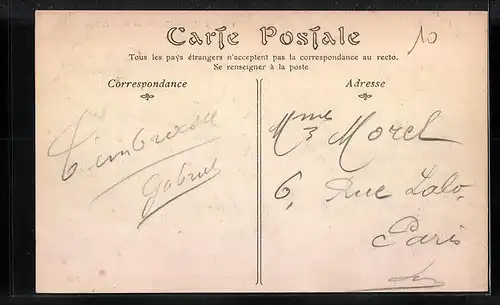 Carte Postale
10
Tous les pays étrangers n'acceptent pas la correspondance au recto.
Se renseigner à la poste
Correspondance
Gabriel
Adresse
Mme Morel
6, Rue Lalo.
Paris